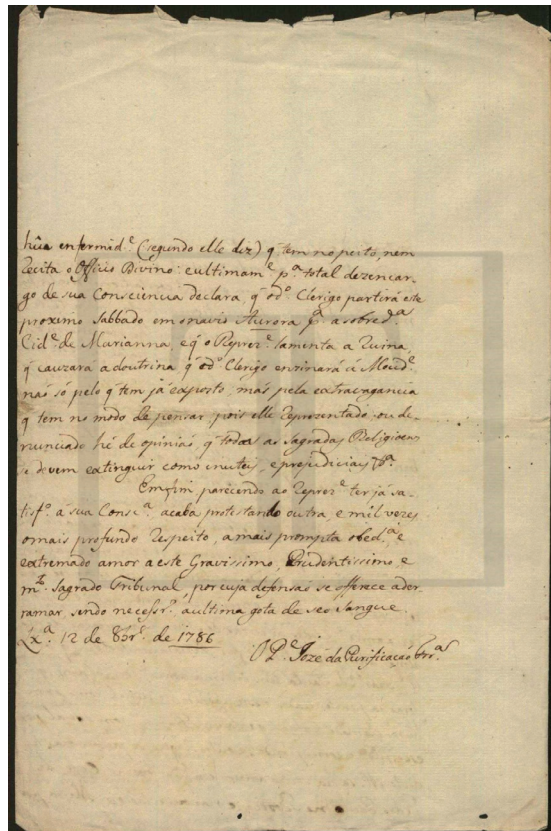 hũa enfermid.e (segundo elle diz) q̃ tem no peito, nem
Recita o Officio Divino: e ultimam.e p.a total dezencar-
go de sua Consciencia declara, q̃ o d.o Clerigo partirá este
proximo Sabbado em o navio Aurora p.a a sobred.a
Cid.e de Marianna e q̃ o Reprez.e lamenta a Ruina,
q̃ cauzara a doutrina, q̃ o d.o Clerigo ensinará á Mocid.e
não só pelo q̃ tem já exposto, mas pela extravagancia
q̃ tem no modo de pensar, pois elle Reprezentado ou de-
nunciado hé de opinião, q̃ todas as Sagradas Religioens
se devem extinguir como inuteis, e prejudiciais &.a
Emfim parecendo ao Reprez.e ter já sa-
tisf.o á sua Consc.a acaba protestando outra, e mil vezes
o mais profundo Respeito, a mais prompta obed.a e
extremado amor a este Gravissimo, Prudentissimo, e
m.to Sagrado Tribunal, por cuja defensaõ se offerece a der-
ramar, sendo necessr.o a ultima gota de seo Sangue.
Lx.a 12 de 8br.o de 1786
O P.e Jozé da Purificação